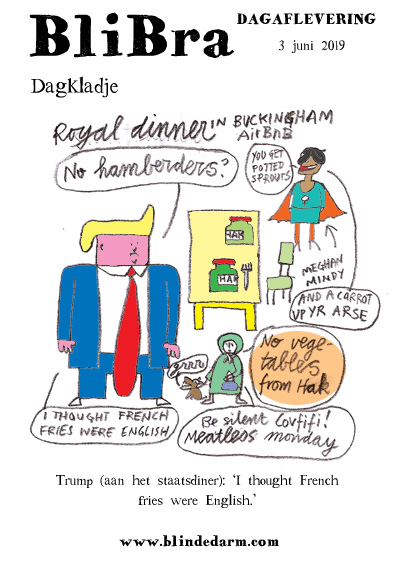 BliBra
DAGAFLEVERING
3 juni 2019
Dagkladje
Royal dinner IN BUCKINGHAM
AirBnB
No hamberders?
YOU GET
POTTED
SPROUTS
HAK
HAK
MEGHAN
MINDY
AND A CARROT
UP YR ARSE
No vege-
tables
from Hak
grrr
I THOUGHT FRENCH
FRIES WERE ENGLISH
Be silent Covfifi!
Meatless monday
Trump (aan het staatsdiner): 'I thought French
fries were English.'
www.blindedarm.com